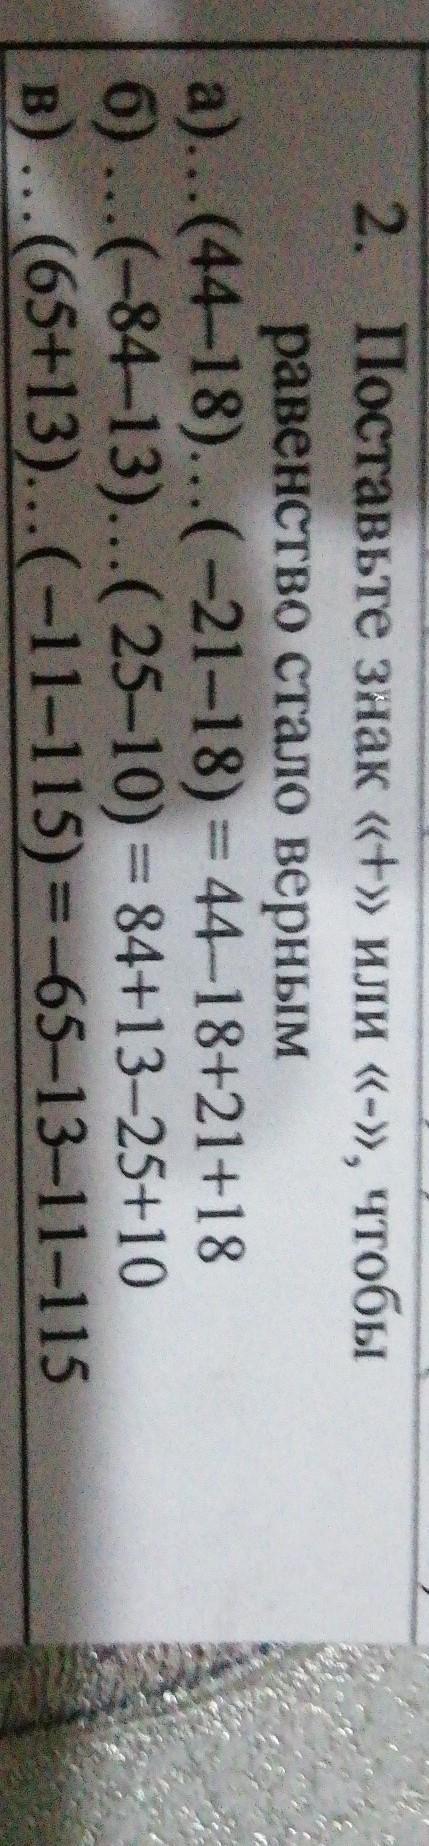 2. Поставьте знак «+» или «-», чтобы
равенство стало верным
а)…(44–18)…( –21–18) = 44–18+21+18
б) …(–84–13)…( 25–10) = 84+13–25+10
в) …(65+13)…( –11–115) = –65–13–11–115